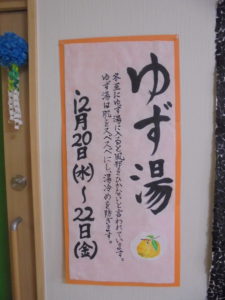 ゆず湯
冬至にゆず湯に入ると風邪をひかないと言われています。
ゆず湯は肌をスベスベにし、湯冷めを防ぎます。
12月20日(水)
〜22日(金)